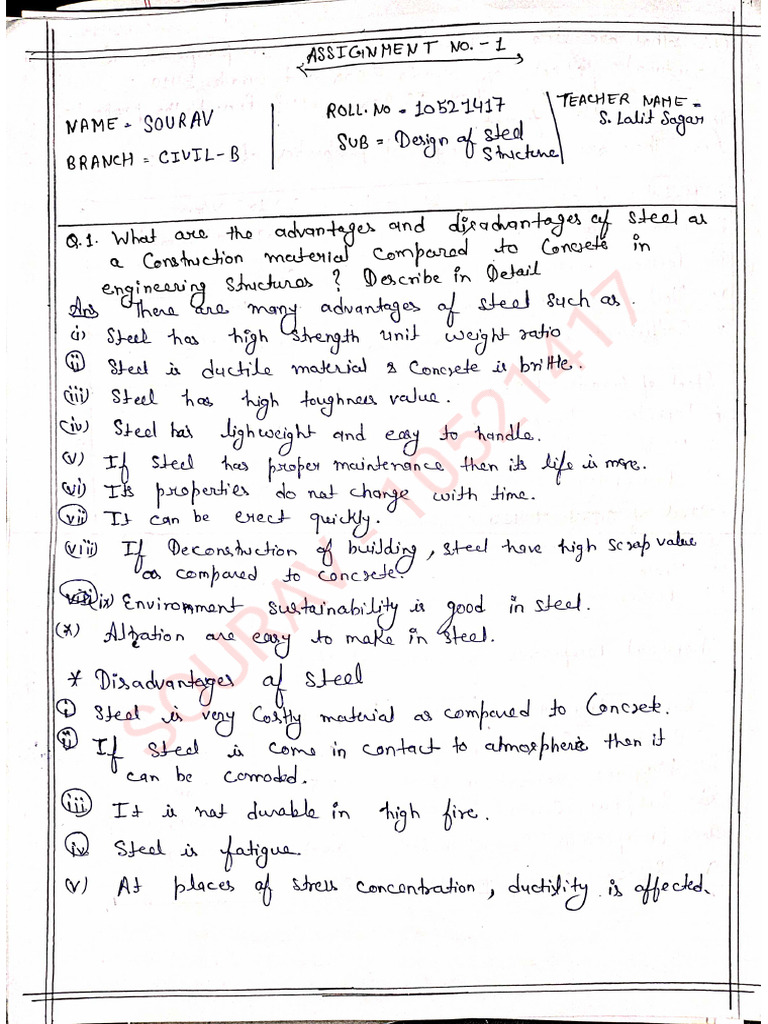 ASSIGNMENT NO. - 1
NAME = SOURAV
BRANCH = CIVIL-B
ROLL. NO = 10521417
SUB = Design of Steel
Structure
TEACHER NAME =
S. Lalit Sagar
Q.1. What are the advantages and disadvantages of Steel as
a Construction material compared to Concrete in
engineering Structures ? Describe in Detail
Ans There are many advantages of steel such as.
(i) Steel has high strength unit weight ratio
(ii) Steel is ductile material & Concrete is brittle.
(iii) Steel has high toughness value.
(iv) Steel has lighweight and easy to handle.
(v) If Steel has proper maintenance then its life is more.
(vi) Its properties do not change with time.
(vii) It can be erect quickly.
(viii) If Deconstruction of building, steel have high scrap value
as compared to concrete.
(ix) Environment sustainability is good in steel.
(x) Altration are easy to make in steel.
* Disadvantages of Steel
(i) Steel is very Costly material as compared to Concrete.
(ii) If Steel is come in contact to atmospheric then it
can be corroded.
(iii) It is not durable in high fire.
(iv) Steel is fatigue.
(v) At places of stress concentration, ductility is affected.
SOURAV - 10521417